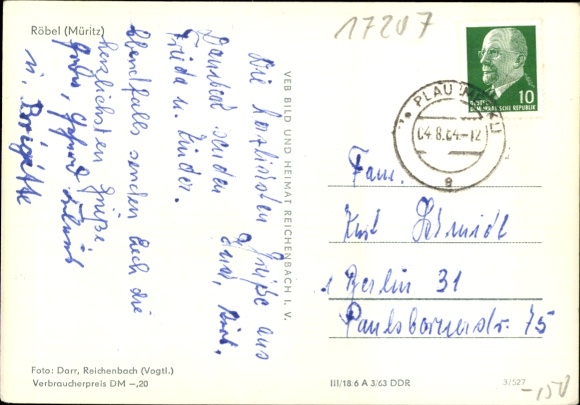 Röbel (Müritz)
17207
10
DEUTSCHE
DEMOKRATISCHE REPUBLIK
PLAU (MECKL)
04.8.64-12
a
Die herzlichsten Grüße aus
senden Euch,
Frieda u. Kinder.
Ebenfalls senden Euch die
herzlichsten Grüße
u. Brigitte
VEB BILD UND HEIMAT REICHENBACH I. V.
Fam.
Kurt Schmidt
1 Berlin 31
Paulsbornerstr. 75
Foto: Darr, Reichenbach (Vogtl.)
Verbraucherpreis DM –,20
III/18 6 A 3/63 DDR
3/527
-,150